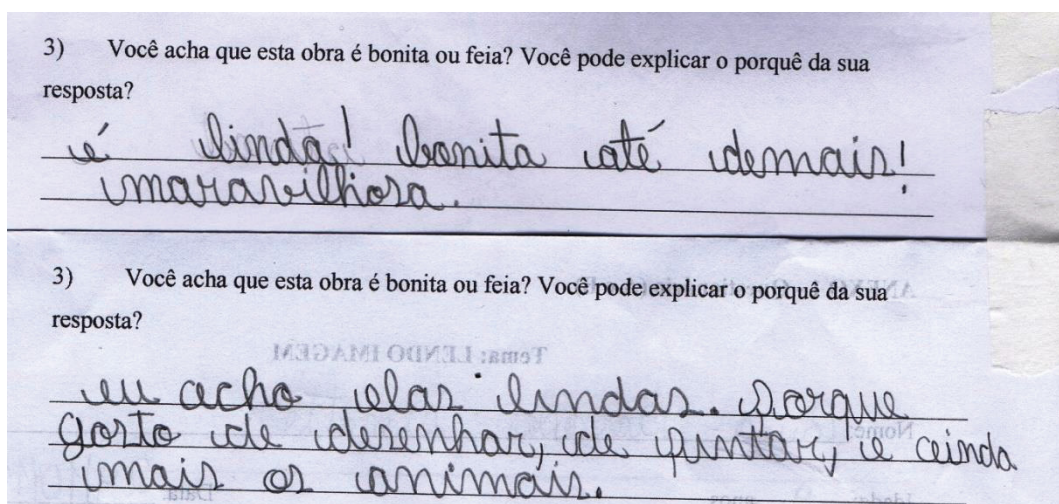 3) Você acha que esta obra é bonita ou feia? Você pode explicar o porquê da sua
resposta?
é linda! bonita até demais!
maravilhosa.
3) Você acha que esta obra é bonita ou feia? Você pode explicar o porquê da sua
resposta?
Tema: LENDO IMAGEM
eu acho elas lindas. Porque
gosto de desenhar, de pintar, e ainda
mais os animais.